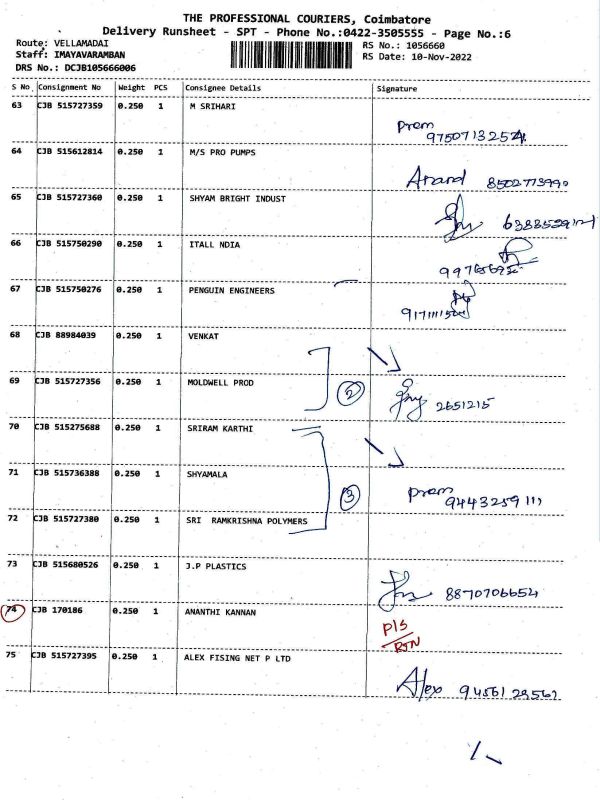 THE PROFESSIONAL COURIERS, Coimbatore
Delivery Runsheet - SPT - Phone No.:0422-3505555 - Page No.:6
Route: VELLAMADAI
Staff: IMAYAVARAMBAN
DRS No.: DCJB105666006
RS No.: 1056660
RS Date: 10-Nov-2022
S No Consignment No Weight PCS Consignee Details Signature
63 CJB 515727359 0.250 1 M SRIHARI
Prem
9750713254
64 CJB 515612814 0.250 1 M/S PRO PUMPS
Anand
65 CJB 515727360 0.250 1 SHYAM BRIGHT INDUST
66 CJB 515750290 0.250 1 ITALL NDIA
67 CJB 515750276 0.250 1 PENGUIN ENGINEERS
68 CJB 88984039 0.250 1 VENKAT
69 CJB 515727356 0.250 1 MOLDWELL PROD
② 2651215
70 CJB 515275688 0.250 1 SRIRAM KARTHI
71 CJB 515736388 0.250 1 SHYAMALA
③ Prem
9443259111
72 CJB 515727380 0.250 1 SRI RAMKRISHNA POLYMERS
73 CJB 515680526 0.250 1 J.P PLASTICS
8870706654
74 CJB 170186 0.250 1 ANANTHI KANNAN
P/S
RTN
75 CJB 515727395 0.250 1 ALEX FISING NET P LTD
Alex 9456123562